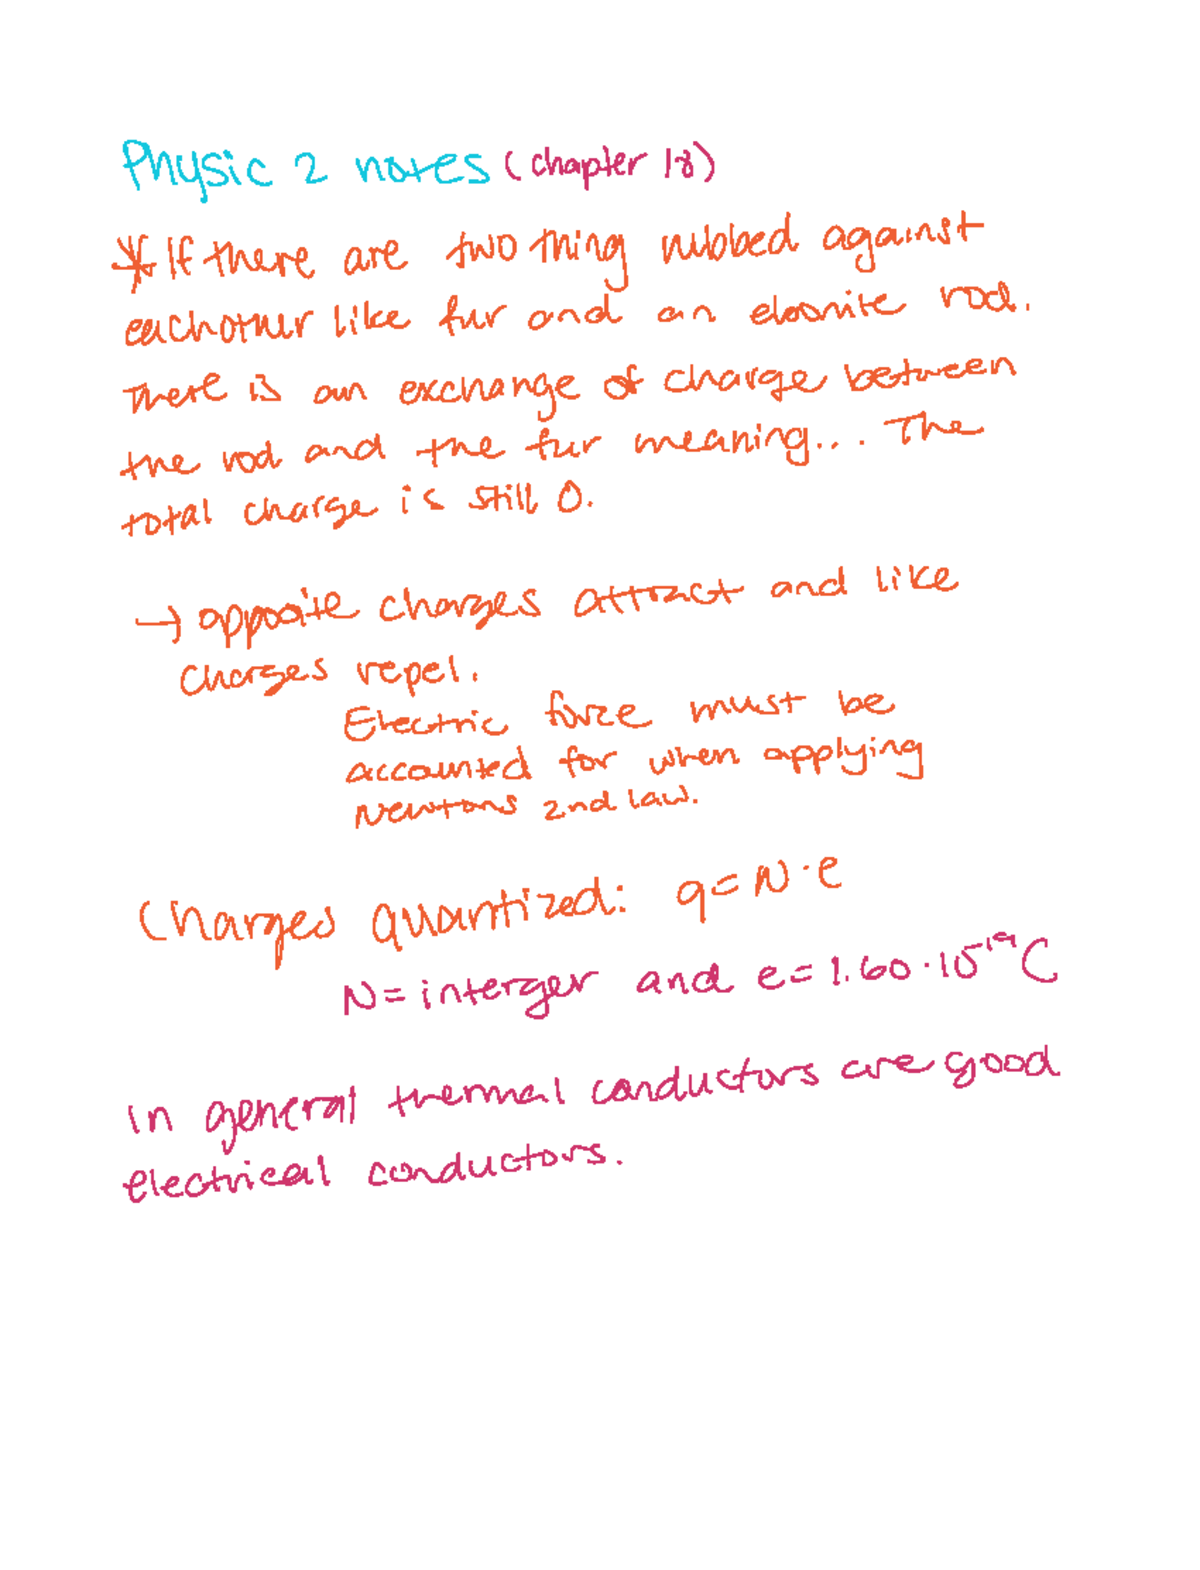 Physic 2 notes (chapter 18)
* If there are two thing rubbed against
eachother like fur and an ebonite rod.
There is an exchange of charge between
the rod and the fur meaning... The
total charge is still 0.
→ opposite charges attract and like
charges repel.
Electric force must be
accounted for when applying
Newtons 2nd law.
Charges quantized: q = N · e
N = interger and e = 1.60 · 10⁻¹⁹ C
In general thermal conductors are good
electrical conductors.